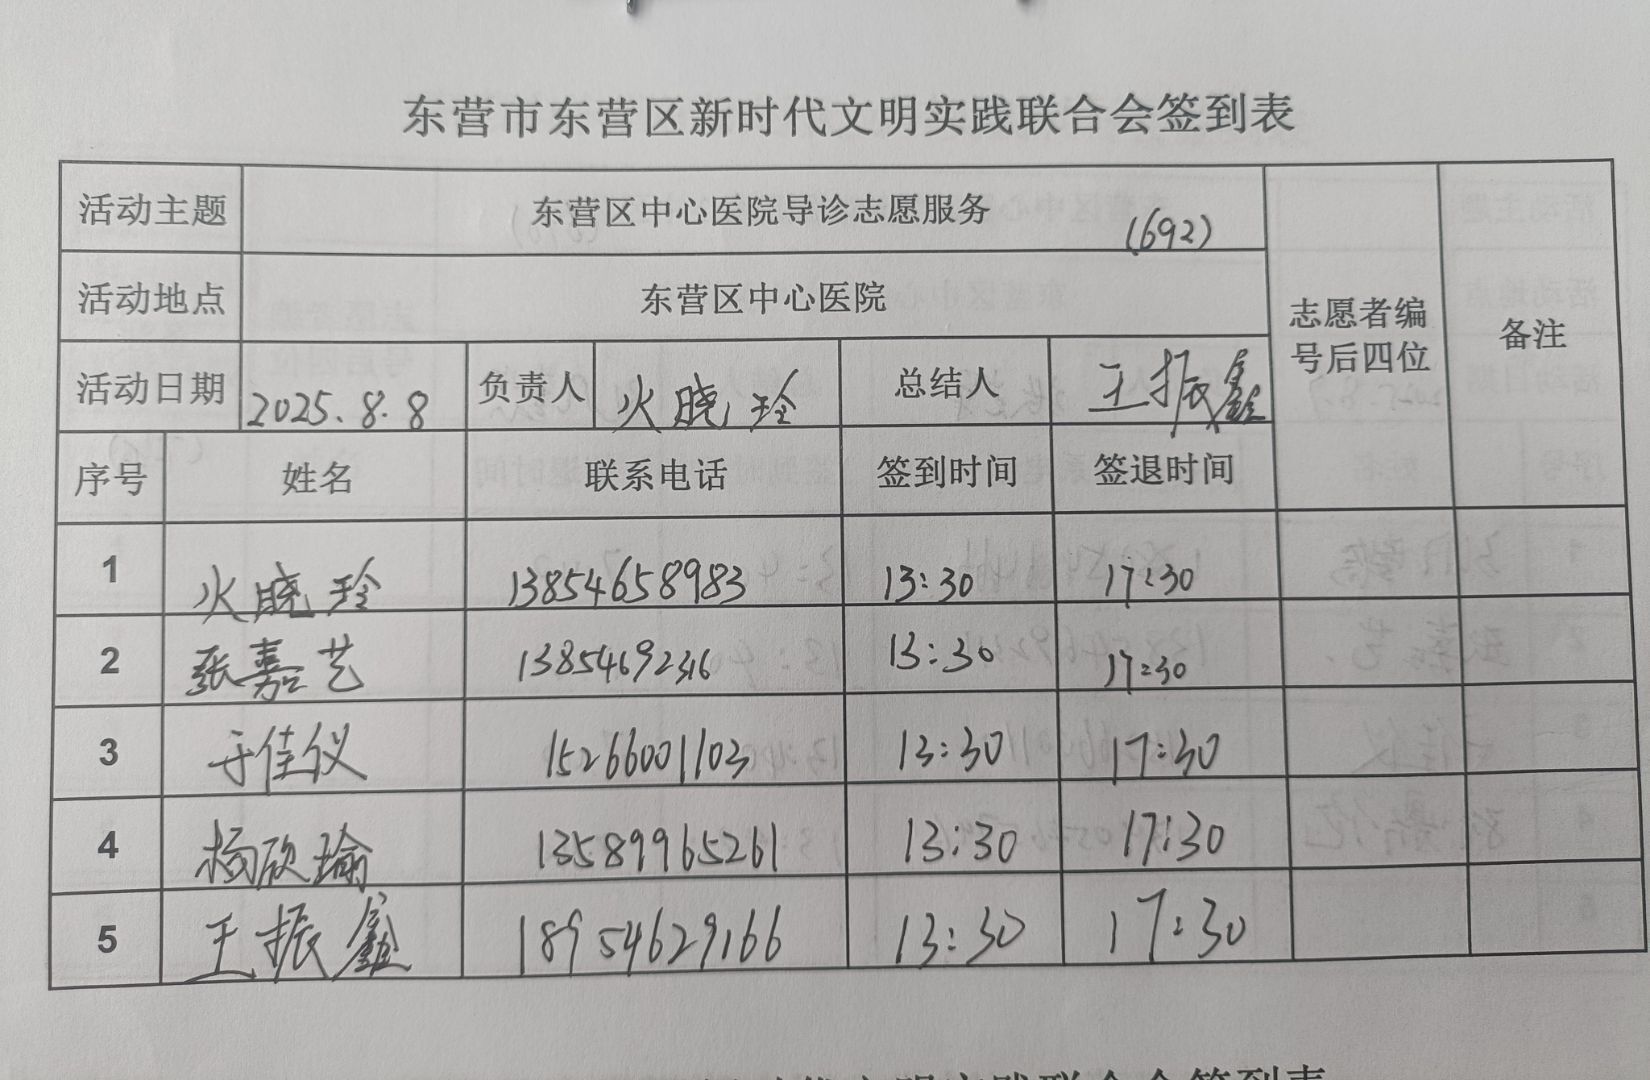 东营市东营区新时代文明实践联合会签到表
活动主题 东营区中心医院导诊志愿服务 (692)
活动地点 东营区中心医院 志愿者编号后四位 备注
活动日期 2025.8.8 负责人 火晓玲 总结人 王振鑫
序号 姓名 联系电话 签到时间 签退时间
1 火晓玲 13854658983 13:30 17:30
2 张嘉艺 13854692316 13:30 17:30
3 于佳仪 15266001103 13:30 17:30
4 杨欣瑜 13589965261 13:30 17:30
5 王振鑫 18954629166 13:30 17:30